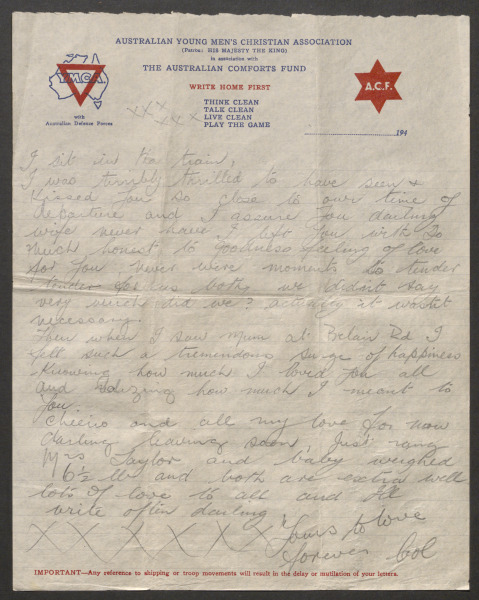 AUSTRALIAN YOUNG MEN'S CHRISTIAN ASSOCIATION
(Patron: HIS MAJESTY THE KING)
in association with
THE AUSTRALIAN COMFORTS FUND
YMCA
with
Australian Defence Forces
WRITE HOME FIRST
THINK CLEAN
TALK CLEAN
LIVE CLEAN
PLAY THE GAME
A.C.F.
194
x x x x x x
I sit in the train,
I was terribly thrilled to have seen &
Kissed you so close to our time of
departure and I assure you darling
wife never have I left you with so
much honest to goodness feeling of love
for you never were moments so tender
tender for us both, we didn't say
very much did we? actually it wasn't
necessary.
Then when I saw Mum at Belair Rd I
felt such a tremendous surge of happiness
Knowing how much I loved you all
and realizing how much I meant to
you.
Cheerio and all my love for now
darling leaving soon, Just rang
Mrs Taylor and baby weighed
6½ lbs and both are extra well
lots of love to all and I'll
write often darling
Yours to love
forever Col
X X X X X X X
IMPORTANT—Any reference to shipping or troop movements will result in the delay or mutilation of your letters.